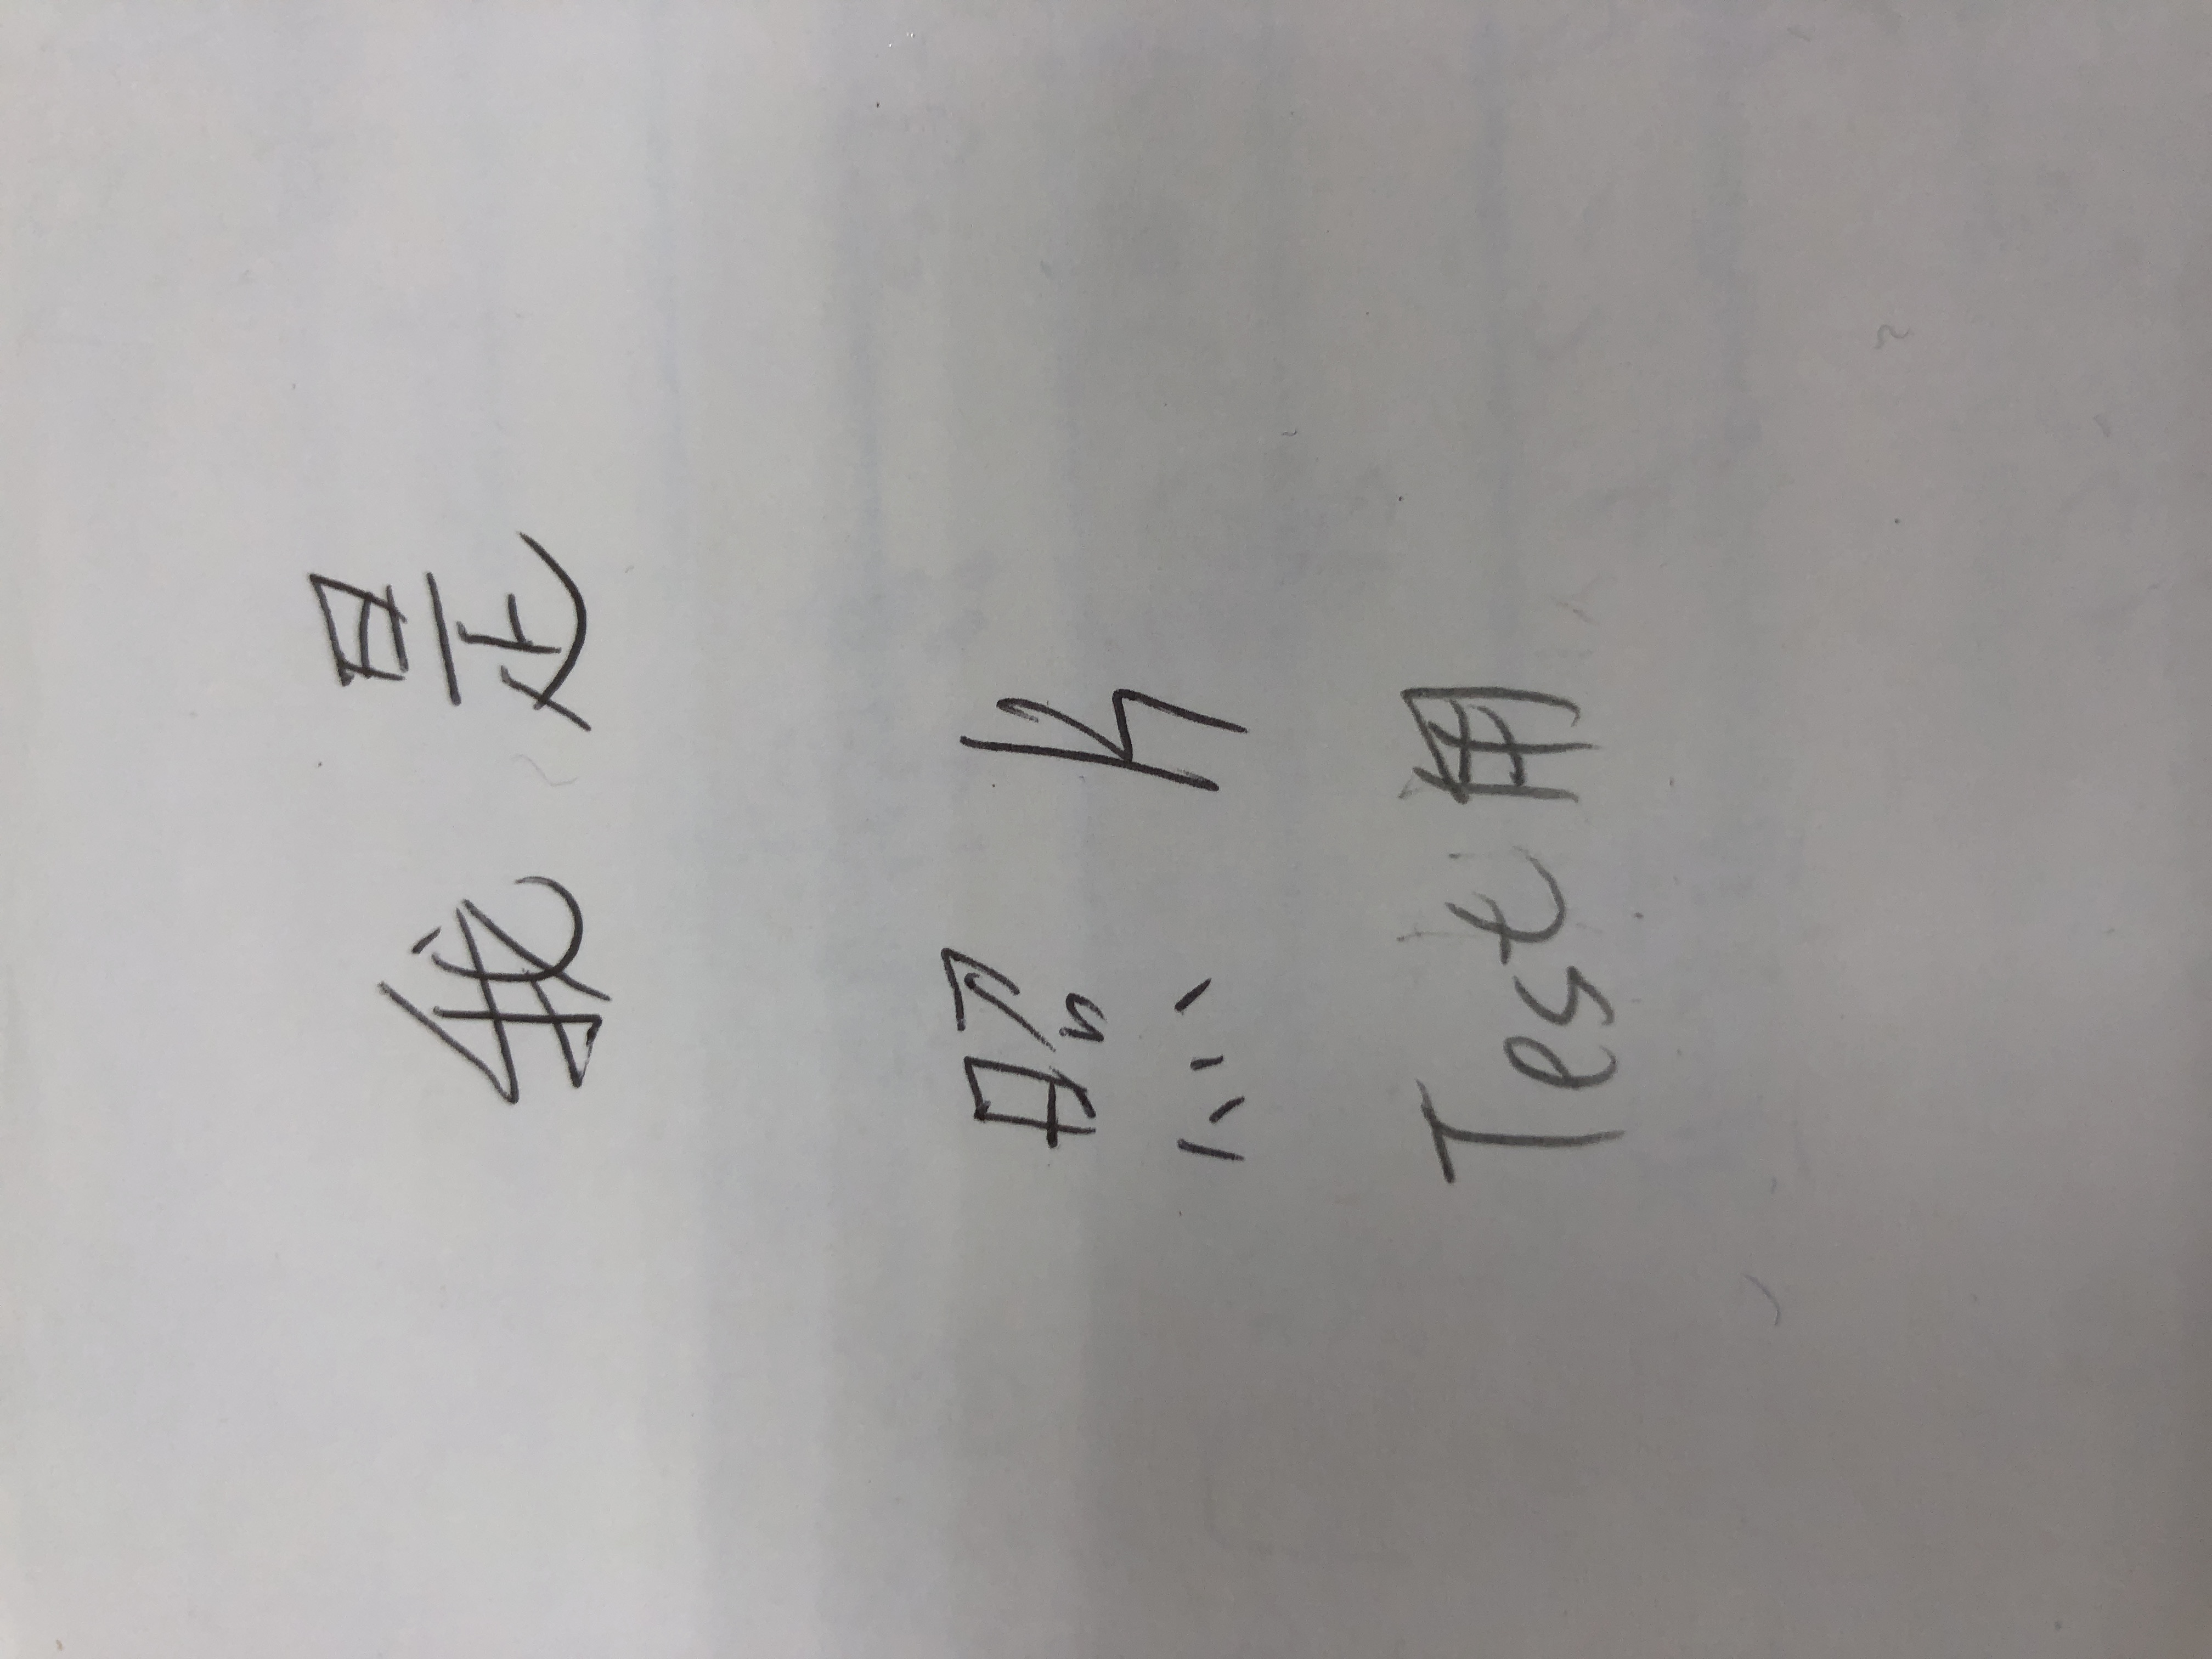 我是
照片
Test用